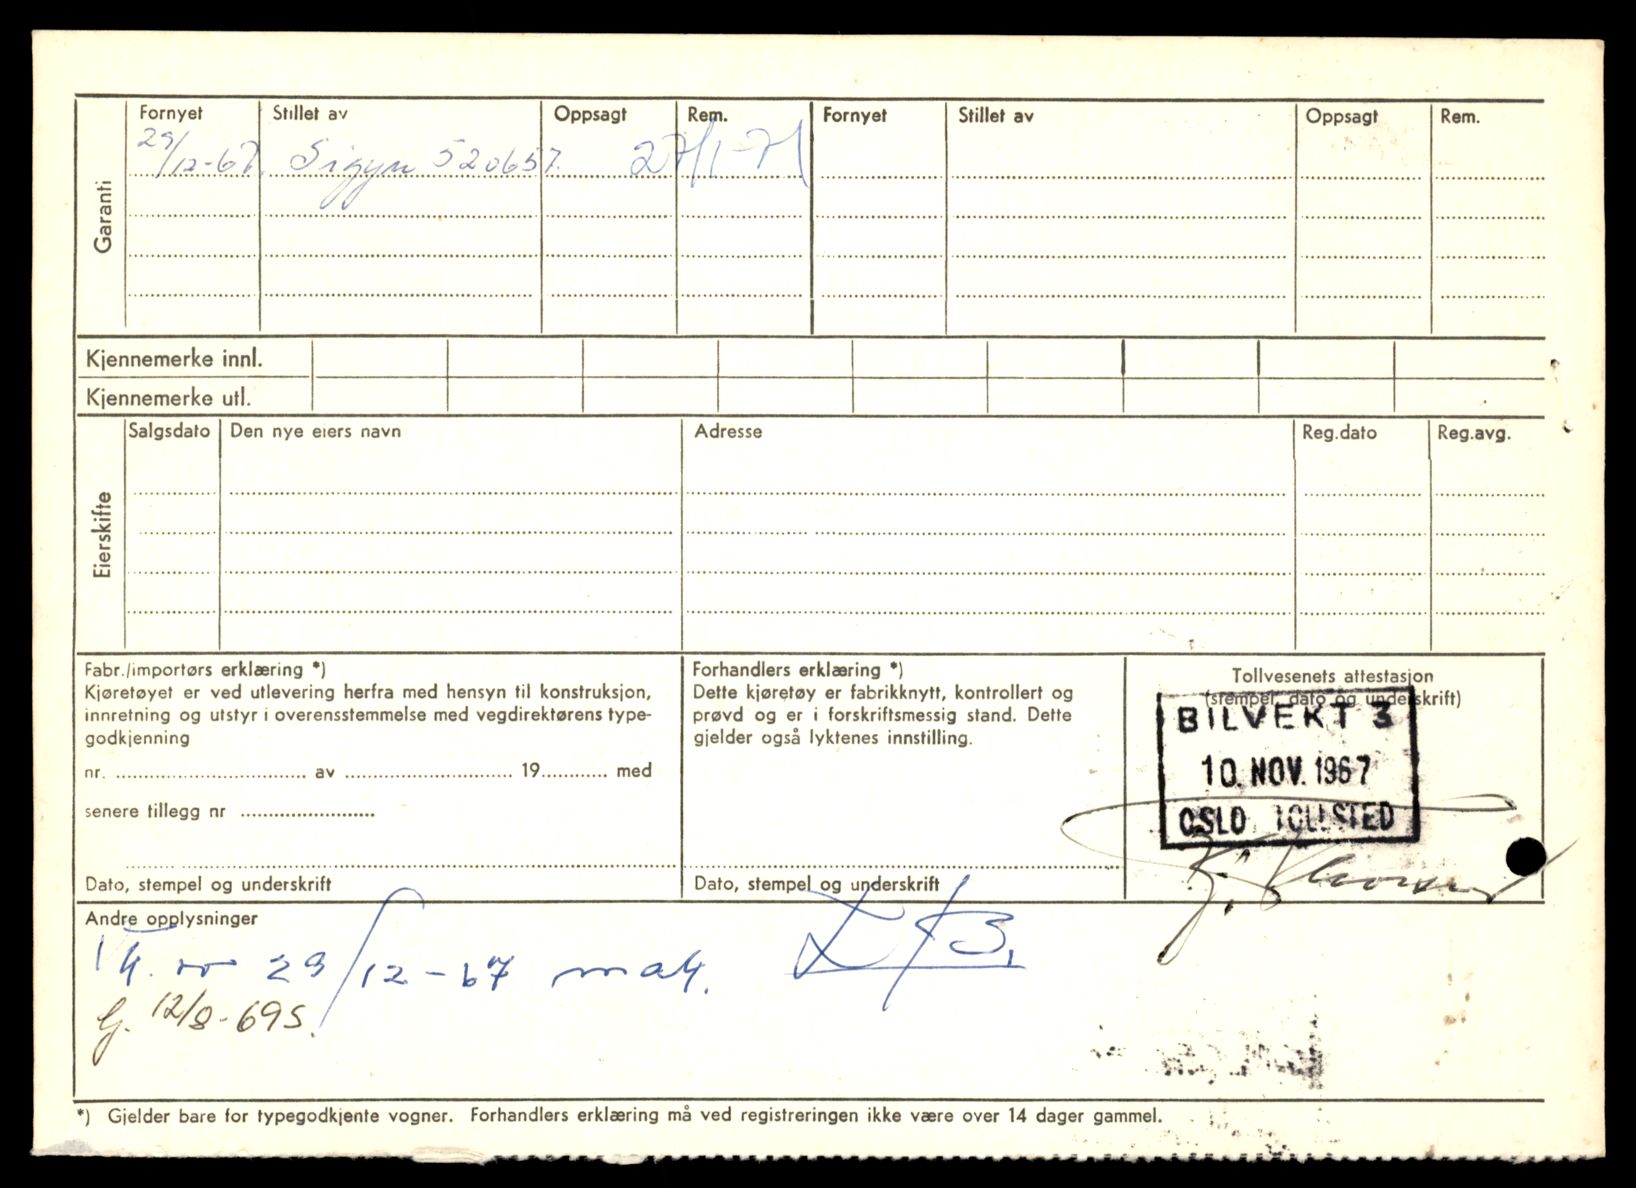 Garanti
Fornyet Stillet av Oppsagt Rem. Fornyet Stillet av Oppsagt Rem.
29/12-67. Sigyn 520657. 27/1-71
Kjennemerke innl.
Kjennemerke utl.
Eierskifte
Salgsdato Den nye eiers navn Adresse Reg.dato Reg.avg.
Fabr./importørs erklæring *)
Kjøretøyet er ved utlevering herfra med hensyn til konstruksjon,
innretning og utstyr i overensstemmelse med vegdirektørens type-
godkjenning
nr. ................ av ................ 19........ med
senere tillegg nr ................
Dato, stempel og underskrift
Forhandlers erklæring *)
Dette kjøretøy er fabrikknytt, kontrollert og
prøvd og er i forskriftsmessig stand. Dette
gjelder også lyktenes innstilling.
Dato, stempel og underskrift
Tollvesenets attestasjon
(stempel, dato og underskrift)
BILVEKT 3
10. NOV. 1967
OSLO TOLLSTED
Andre opplysninger
29/12-67
12/8-69
*) Gjelder bare for typegodkjente vogner. Forhandlers erklæring må ved registreringen ikke være over 14 dager gammel.